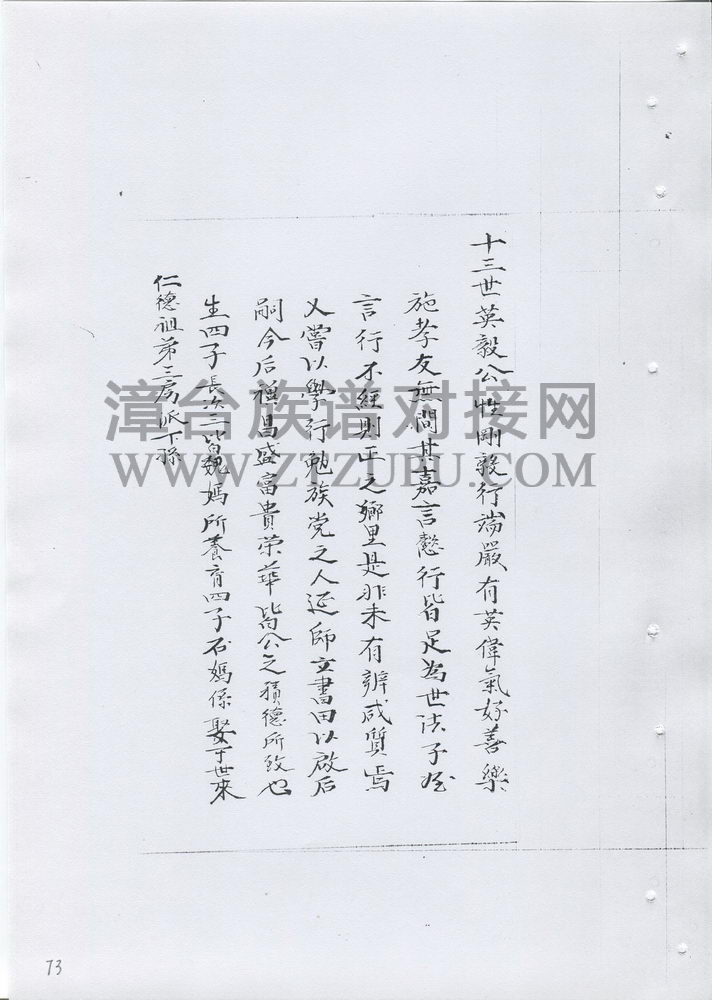 十三世英毅公性剛毅行端嚴有英偉氣好善樂
施孝友無間其嘉言懿行皆足為世法子姪
言行不經則正之鄉里是非未有辨咸質焉
又嘗以學行勉族党之人延師立書田以啟后
嗣今后禩昌盛富貴荣華皆公之積德所致也
生四子長次三皆魏媽所養育四子石媽係娶于世來
仁德祖第三房派下孫
漳台族谱对接网
WWW.ZTZUPU.COM
73